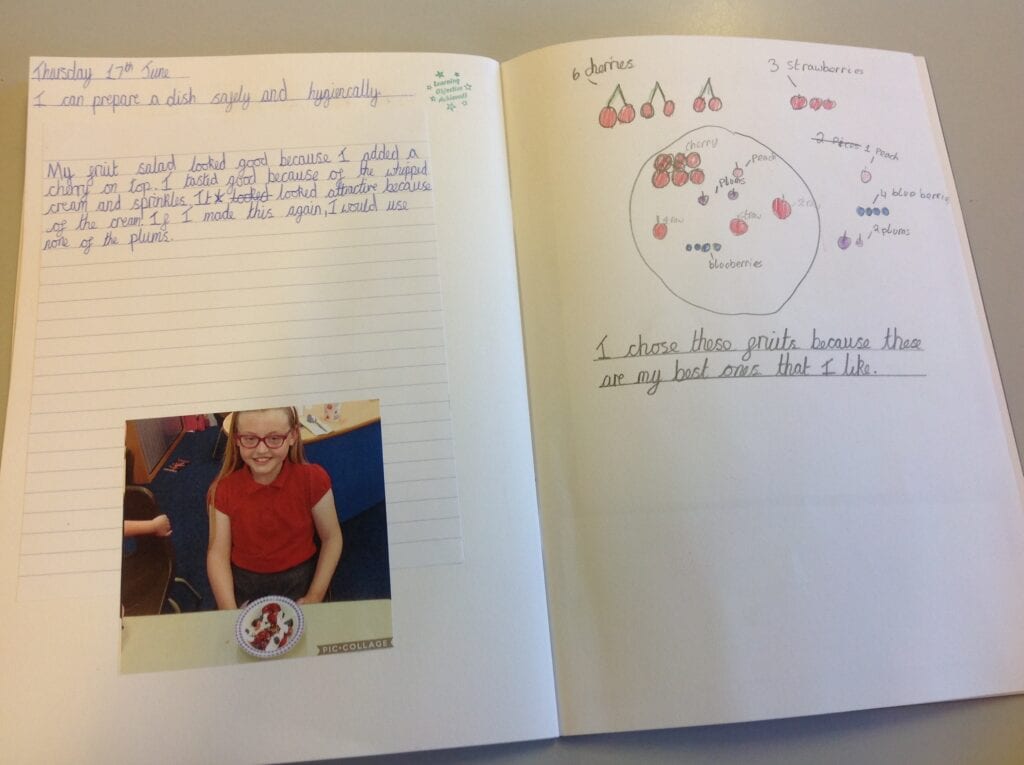 Thursday 17th June
I can prepare a dish safely and hygienically.
Learning
Objective
Achieved!
My fruit salad looked good because I added a
cherry on top. I tasted good because of the whipped
cream and sprinkles. It looked looked attractive because
of the cream. If I made this again, I would use
none of the plums.
PIC•COLLAGE
6 cherries
3 strawberries
2 Pices 1 Peach
4 bloo berries
2 plums
cherry
Peach
Plums
straw
blooberries
I chose these fruits because these
are my best ones that I like.